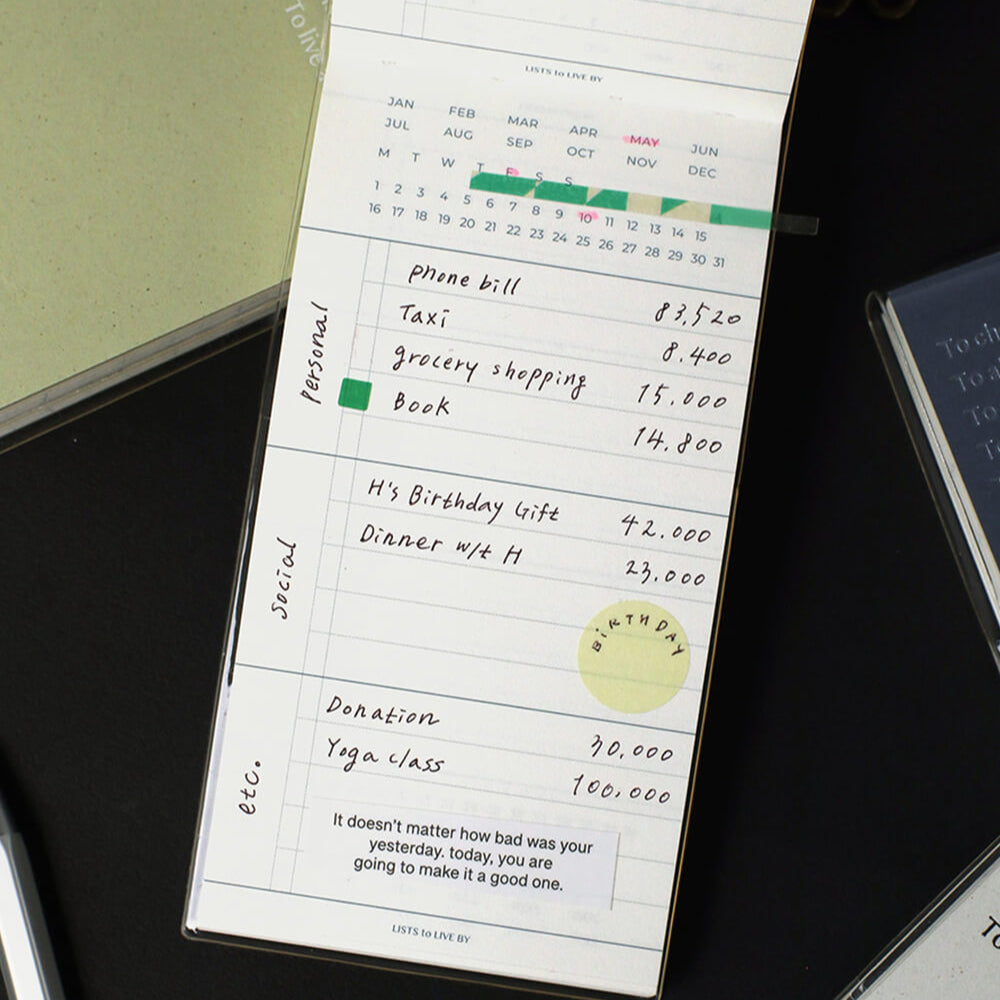 To live
LISTS to LIVE BY
JAN FEB MAR APR MAY JUN
JUL AUG SEP OCT NOV DEC
M T W T F S S
1 2 3 4 5 6 7 8 9 10 11 12 13 14 15
16 17 18 19 20 21 22 23 24 25 26 27 28 29 30 31
Personal
phone bill 83,520
Taxi 8.400
grocery shopping 15.000
Book 14.800
social
H's Birthday Gift 42.000
Dinner w/t H 23,000
BiRTHDAY
etc.
Donation 30,000
Yoga class 100,000
It doesn't matter how bad was your
yesterday. today, you are
going to make it a good one.
LISTS to LIVE BY